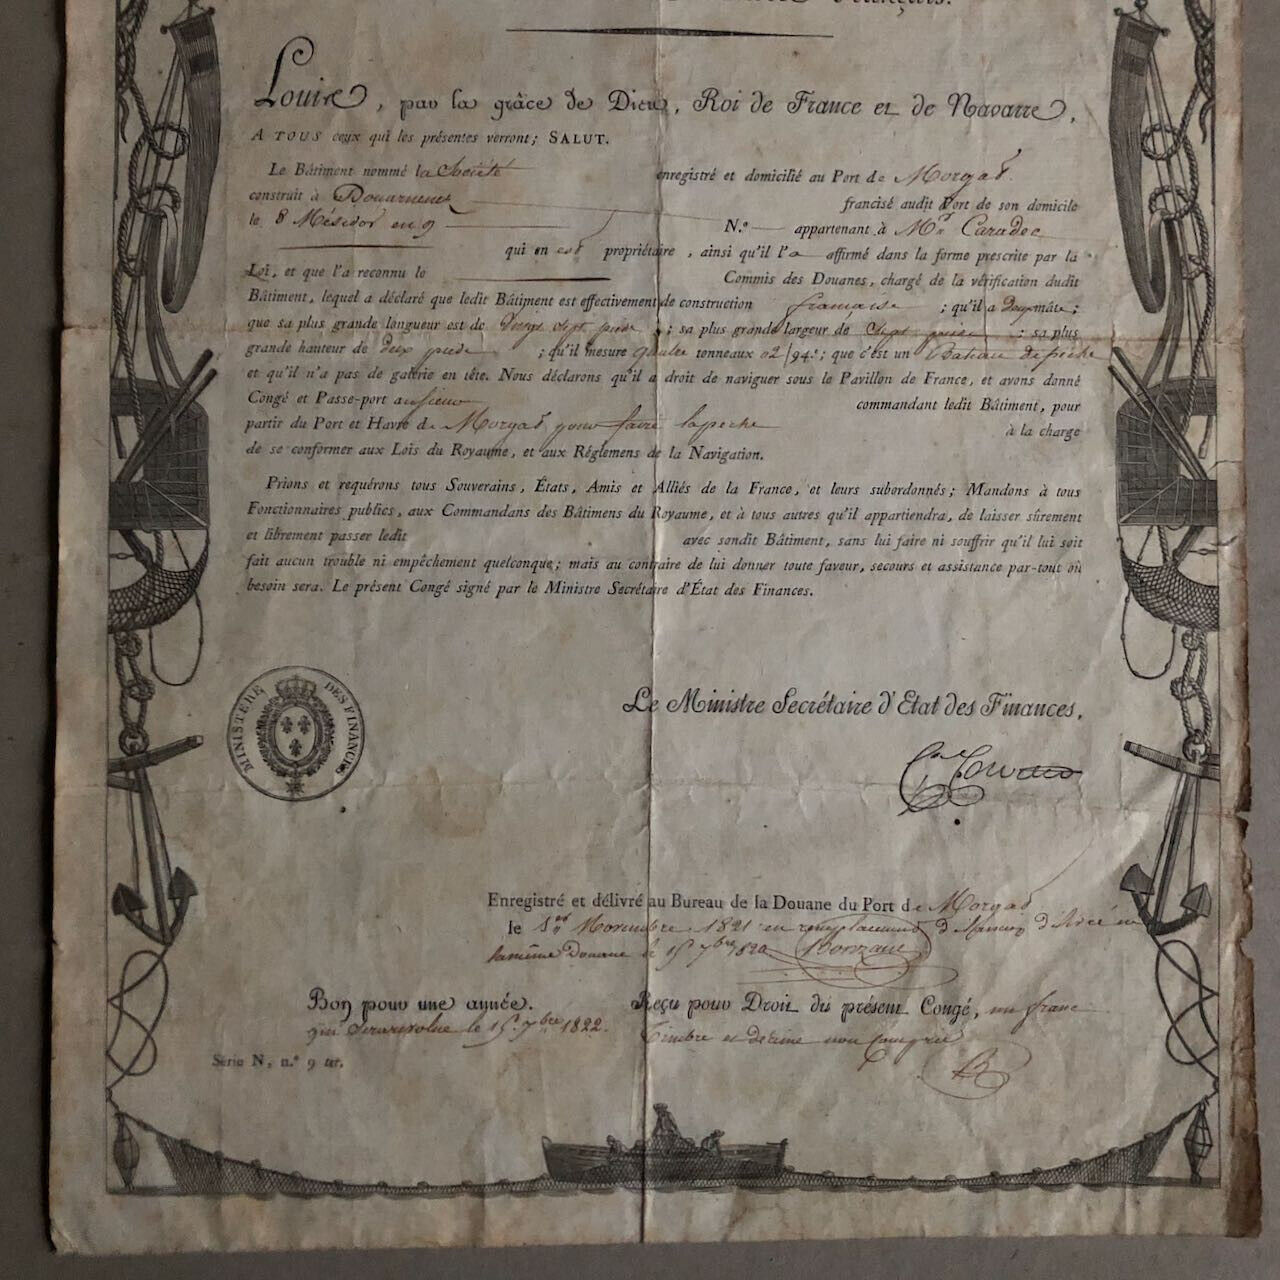 Français.
Louis, par la grâce de Dieu, Roi de France et de Navarre,
A TOUS ceux qui les présentes verront; SALUT.
Le Bâtiment nommé la Société enregistré et domicilié au Port de Morgat.
construit à Douarnenez francisé audit Port de son domicile
le 8 Mésidor en 9 N.º appartenant à Mr Caradec
qui en est propriétaire, ainsi qu'il l'a affirmé dans la forme prescrite par la
Loi, et que l'a reconnu le Commis des Douanes, chargé de la vérification dudit
Bâtiment, lequel a déclaré que ledit Bâtiment est effectivement de construction française ; qu'il a deux mâts ;
que sa plus grande longueur est de Vingt Sept pieds ; sa plus grande largeur de Sept pieds ; sa plus
grande hauteur de deux pieds ; qu'il mesure quatre tonneaux 02/94.e ; que c'est un Bateau de pêche
et qu'il n'a pas de galerie en tête. Nous déclarons qu'il a droit de naviguer sous le Pavillon de France, et avons donné
Congé et Passe-port au Sieur commandant ledit Bâtiment, pour
partir du Port et Havre de Morgat pour faire la pêche à la charge
de se conformer aux Lois du Royaume, et aux Réglemens de la Navigation.
Prions et requérons tous Souverains, États, Amis et Alliés de la France, et leurs subordonnés ; Mandons à tous
Fonctionnaires publics, aux Commandans des Bâtimens du Royaume, et à tous autres qu'il appartiendra, de laisser sûrement
et librement passer ledit avec sondit Bâtiment, sans lui faire ni souffrir qu'il lui soit
fait aucun trouble ni empêchement quelconque ; mais au contraire de lui donner toute faveur, secours et assistance par-tout où
besoin sera. Le présent Congé signé par le Ministre Secrétaire d'État des Finances.
MINISTÈRE DES FINANCES
Le Ministre Secrétaire d'Etat des Finances,
Enregistré et délivré au Bureau de la Douane du Port de Morgat
le Novembre 1821 en remplacement d
la même Douane le 15 7bre 1820
Bon pour une année. Reçu pour Droit du présent Congé, un franc
qui le 15 7bre 1822. timbre et décime non compris
Série N, n.º 9 ter.